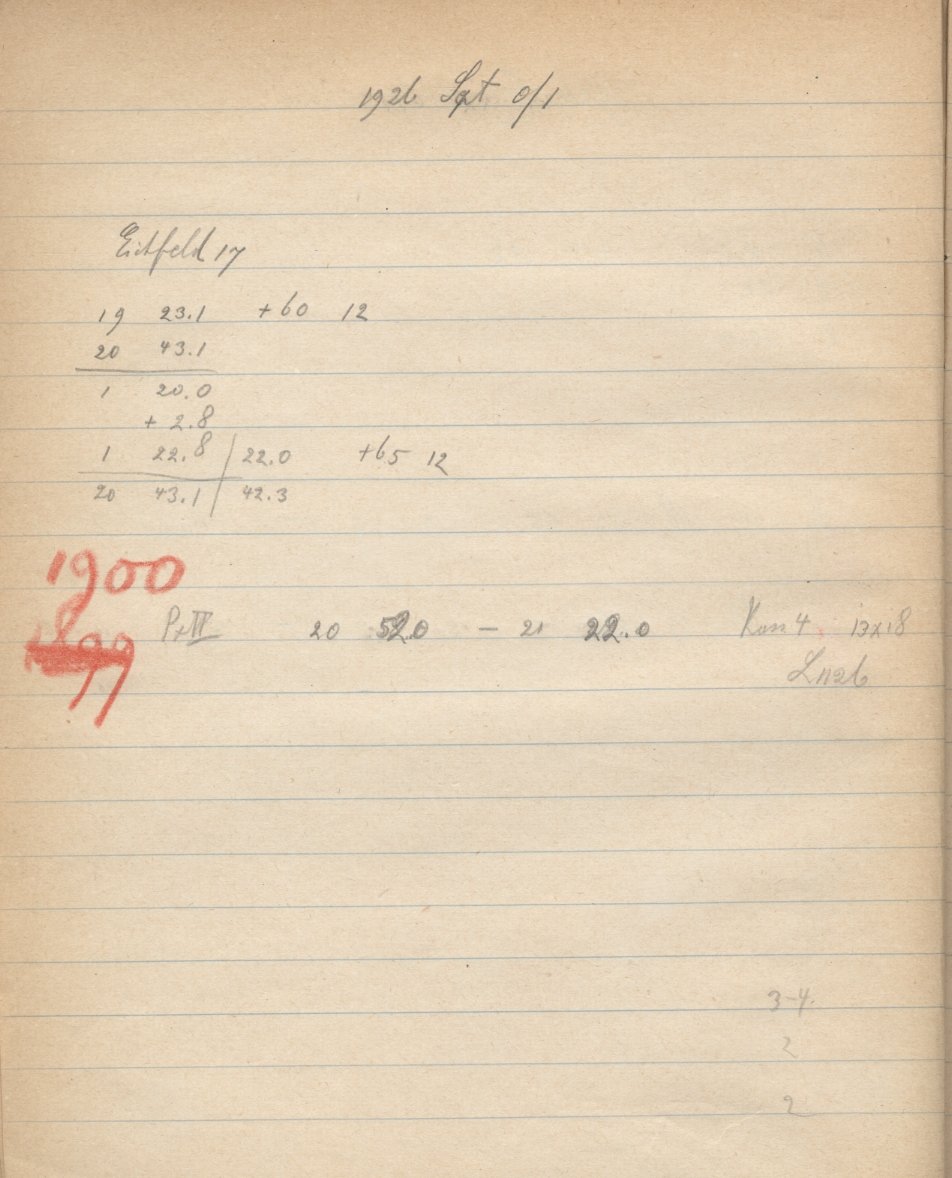 1926 Sept 0/1
Eichfeld 17
19 23.1 +60 12
20 43.1
1 20.0
+ 2.8
1 22.8 | 22.0 +65 12
20 43.1 | 42.3
1900
1899
Pr IV 20 52.0 – 21 22.0 Kass 4 13x18
3-4.
2
2